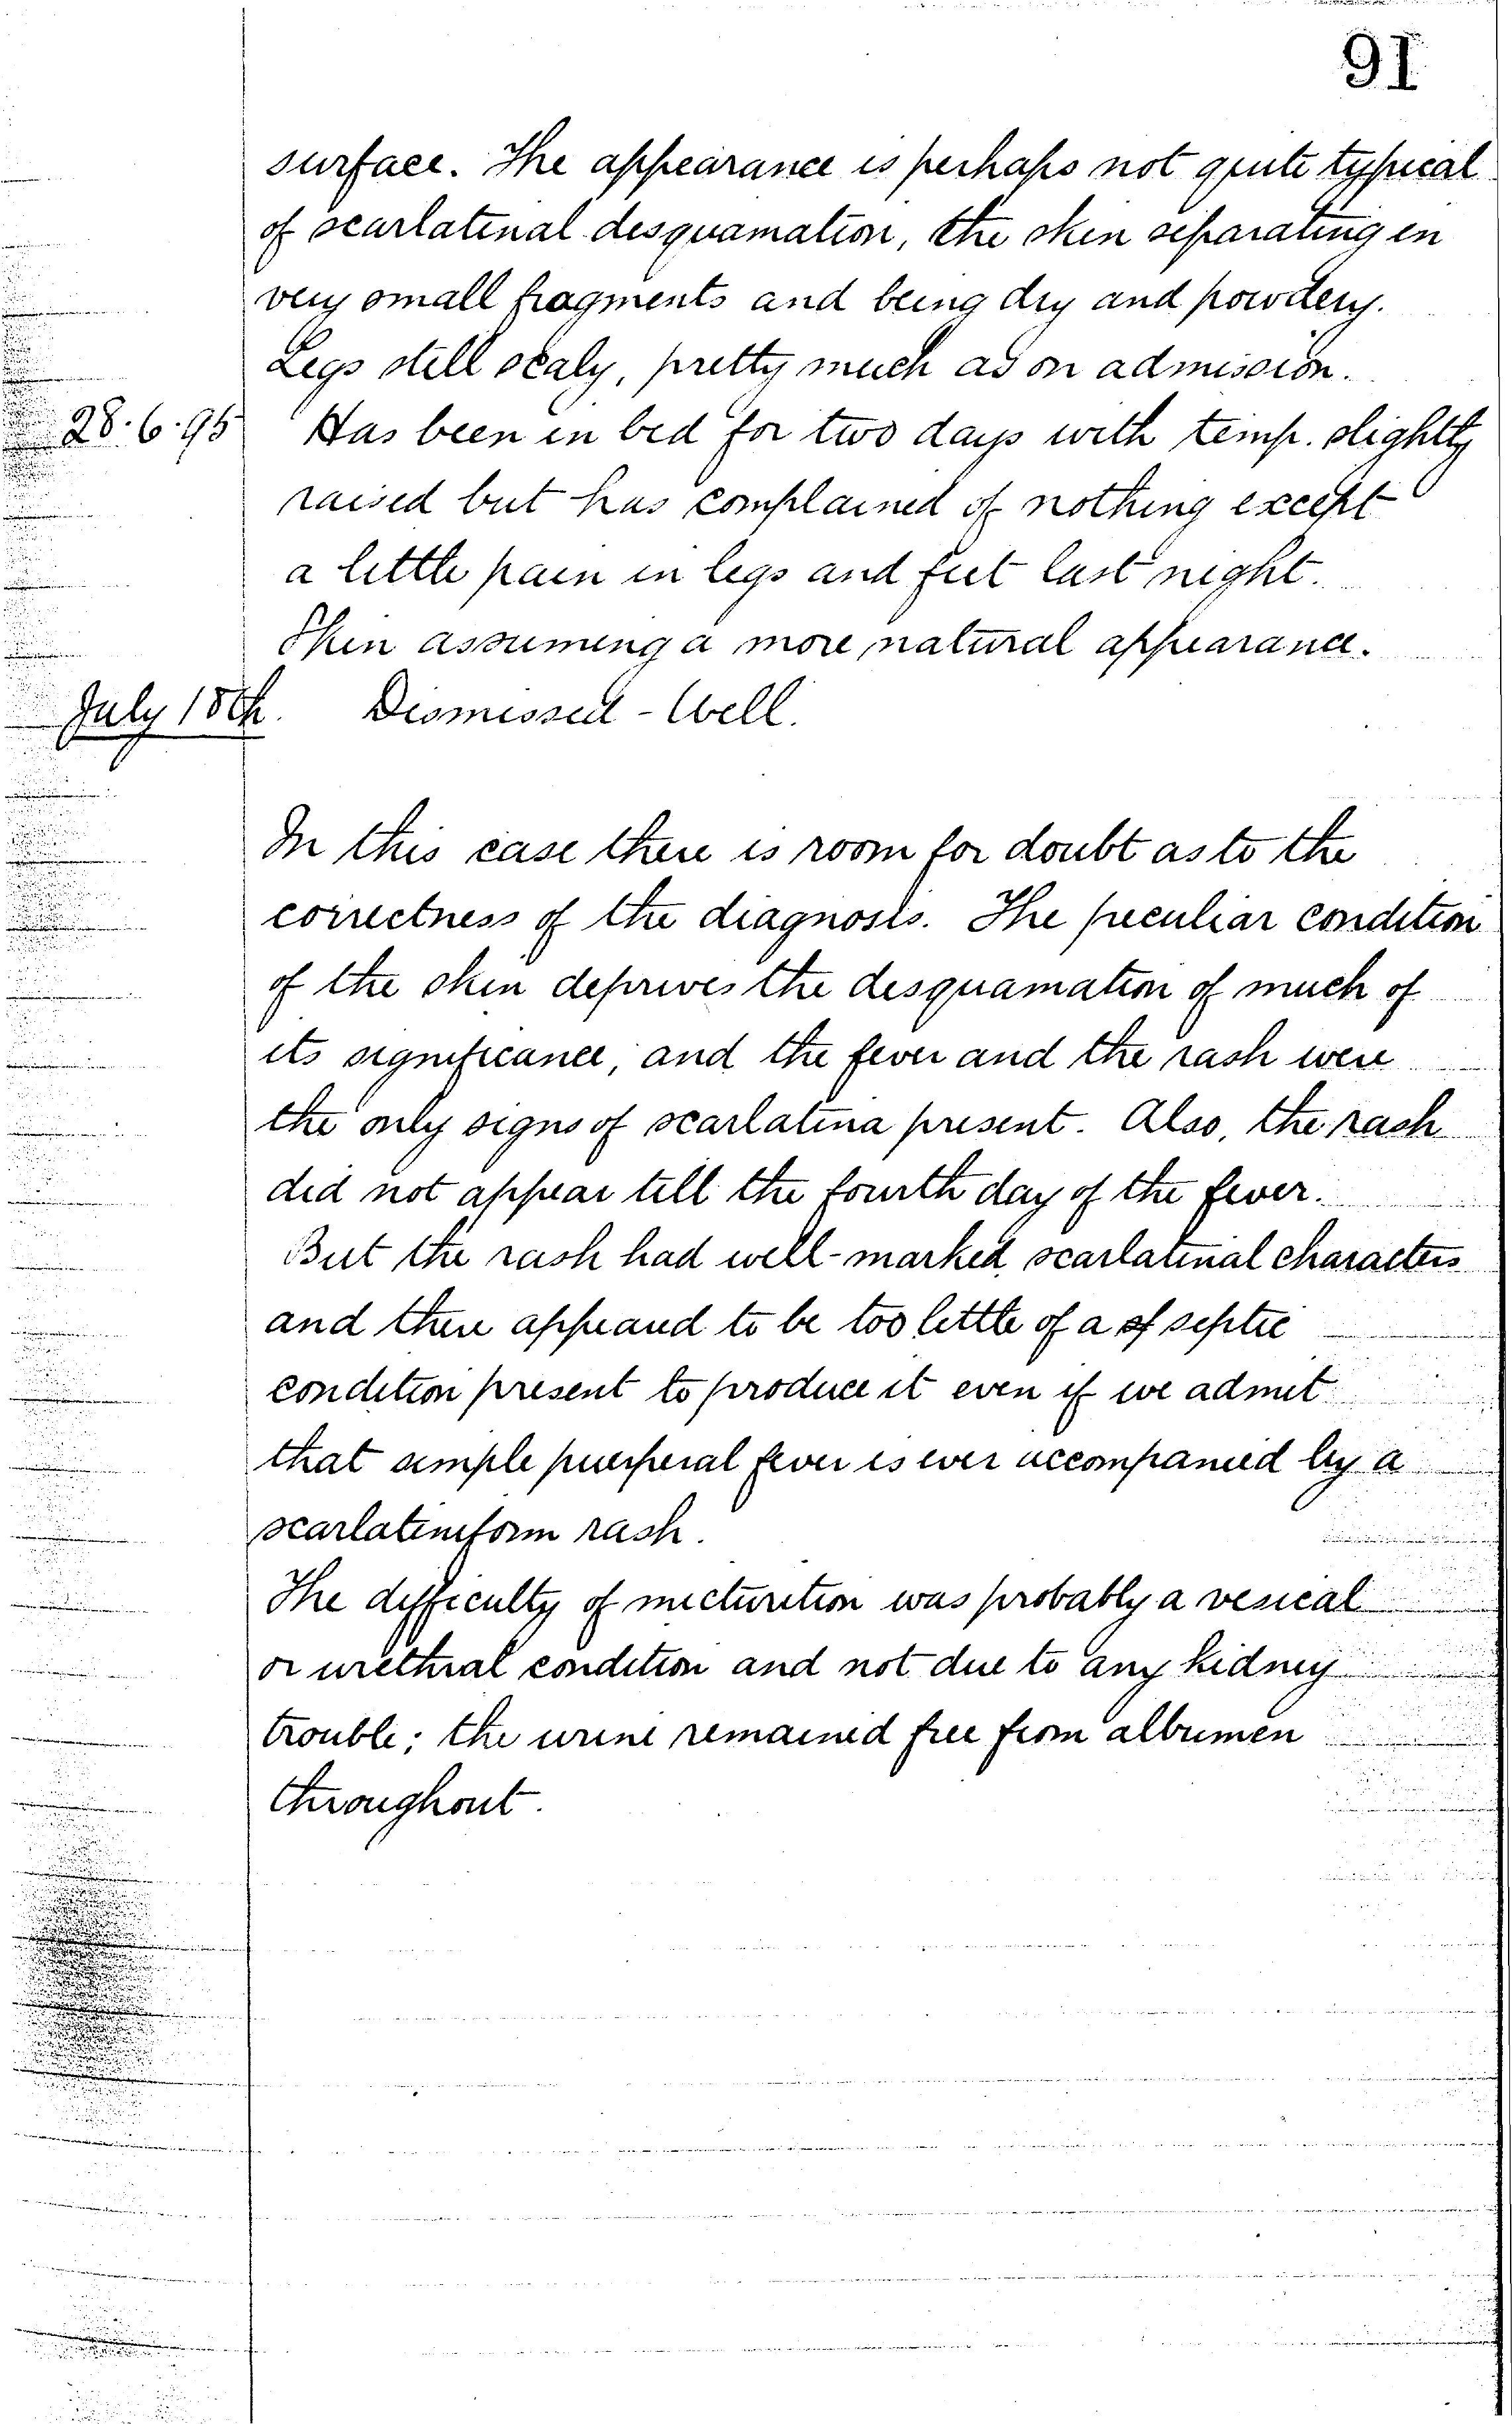 91
surface. The appearance is perhaps not quite typical
of scarlatinal desquamation, the skin separating in
very small fragments and being dry and powdery.
Legs still scaly, pretty much as on admission.
28.6.95 Has been in bed for two days with temp. slightly
raised but has complained of nothing except
a little pain in legs and feet last night.
Skin assuming a more natural appearance.
July 18th. Dismissed - Well.
In this case there is room for doubt as to the
correctness of the diagnosis. The peculiar condition
of the skin deprives the desquamation of much of
its significance, and the fever and the rash were
the only signs of scarlatina present. Also, the rash
did not appear till the fourth day of the fever.
But the rash had well-marked scarlatinal characters
and there appeared to be too little of a of septic
condition present to produce it even if we admit
that simple puerperal fever is ever accompanied by a
scarlatiniform rash.
The difficulty of micturition was probably a vesical
or urethral condition and not due to any kidney
trouble; the urine remained free from albumen
throughout.